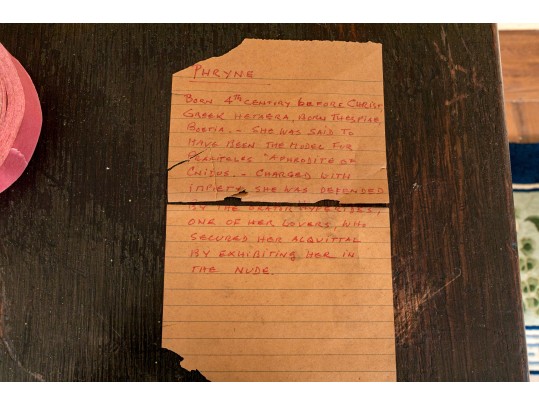 PHRYNE
BORN 4TH CENTURY BEFORE CHRIST,
GREEK HETAERA, BORN THESPIAE,
BOETIA. - SHE WAS SAID TO
HAVE BEEN THE MODEL FOR
PRAXITELES "APHRODITE OF
CNIDUS. - CHARGED WITH
IMPIETY, SHE WAS DEFENDED
BY THE ORATOR HYPERIDES,
ONE OF HER LOVERS, WHO
SECURED HER ACQUITTAL
BY EXHIBITING HER IN
THE NUDE.